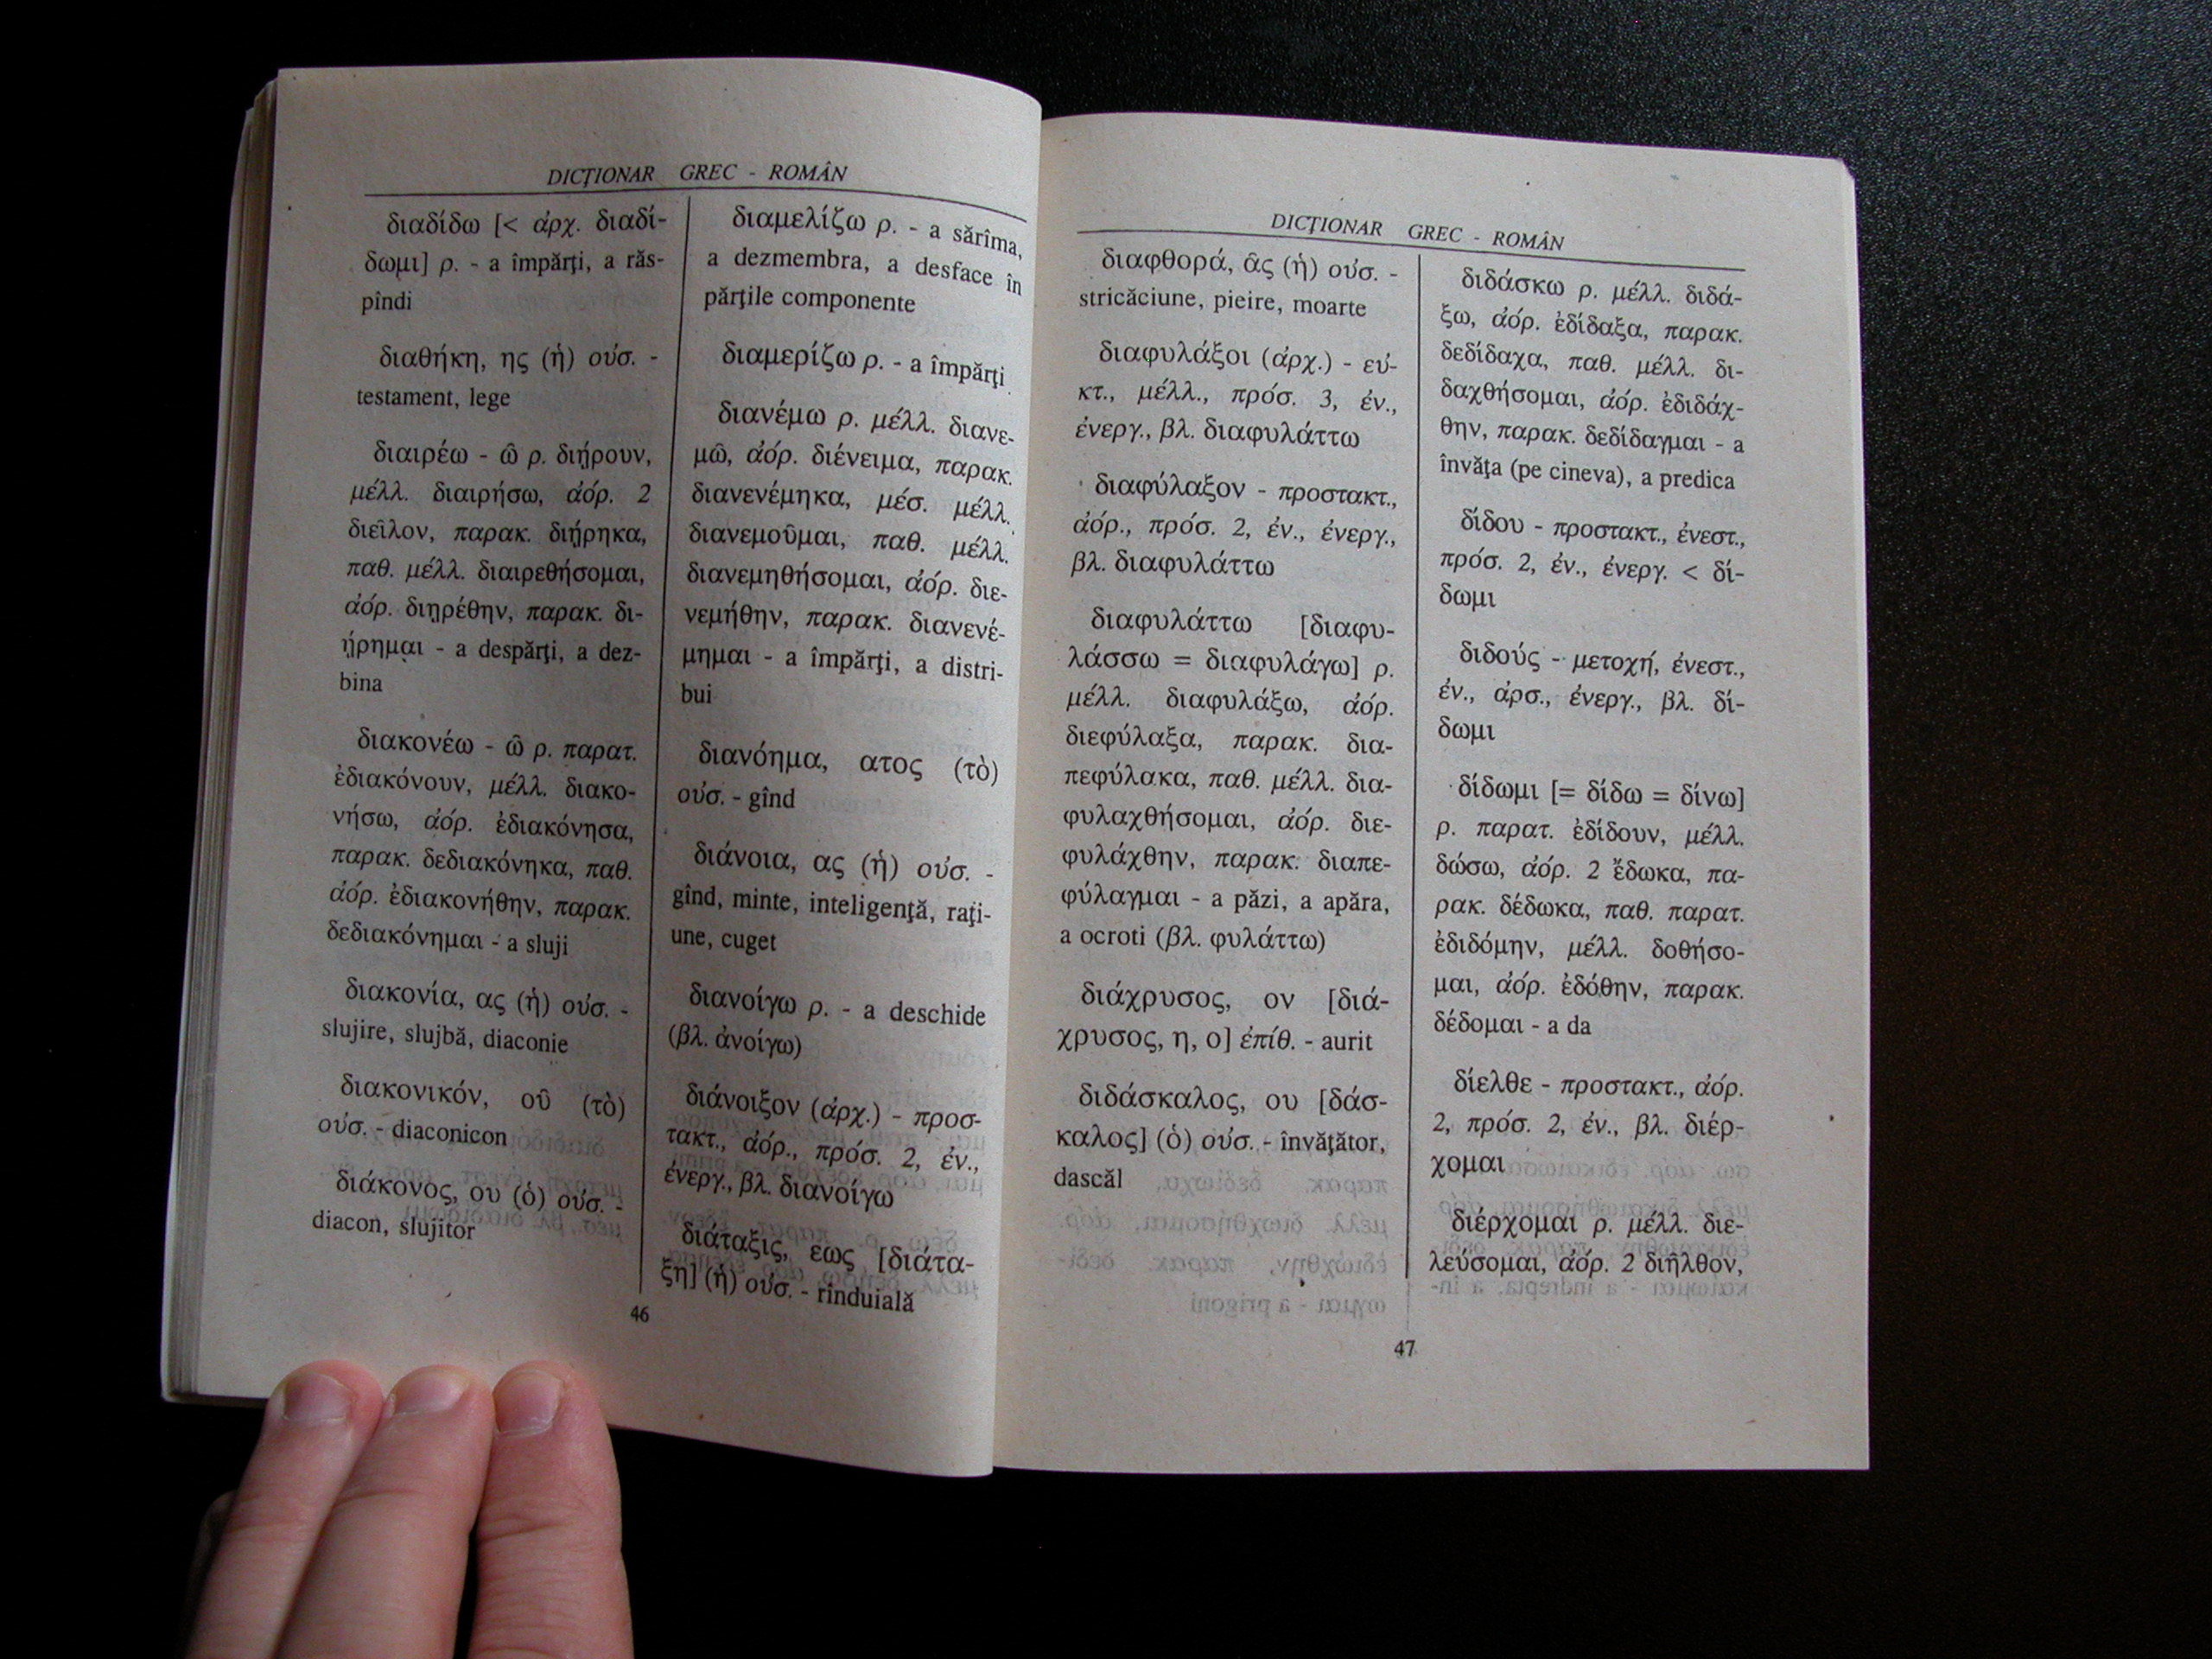 DICŢIONAR GREC - ROMÂN
διαδίδω [< ἀρχ. διαδί-
δωμι] ρ. - a împărţi, a răs-
pîndi
διαθήκη, ης (ἡ) οὐσ. -
testament, lege
διαιρέω - ῶ ρ. διῄρουν,
μέλλ. διαιρήσω, ἀόρ. 2
διεῖλον, παρακ. διῄρηκα,
παθ. μέλλ. διαιρεθήσομαι,
ἀόρ. διῃρέθην, παρακ. δι-
ῄρημαι - a despărţi, a dez-
bina
διακονέω - ῶ ρ. παρατ.
ἐδιακόνουν, μέλλ. διακο-
νήσω, ἀόρ. ἐδιακόνησα,
παρακ. δεδιακόνηκα, παθ.
ἀόρ. ἐδιακονήθην, παρακ.
δεδιακόνημαι - a sluji
διακονία, ας (ἡ) οὐσ. -
slujire, slujbă, diaconie
διακονικόν, οῦ (τὸ)
οὐσ. - diaconicon
διάκονος, ου (ὁ) οὐσ. -
diacon, slujitor
διαμελίζω ρ. - a sărîma,
a dezmembra, a desface în
părţile componente
διαμερίζω ρ. - a împărţi
διανέμω ρ. μέλλ. διανε-
μῶ, ἀόρ. διένειμα, παρακ.
διανενέμηκα, μέσ. μέλλ.
διανεμοῦμαι, παθ. μέλλ.
διανεμηθήσομαι, ἀόρ. διε-
νεμήθην, παρακ. διανενέ-
μημαι - a împărţi, a distri-
bui
διανόημα, ατος (τὸ)
οὐσ. - gînd
διάνοια, ας (ἡ) οὐσ. -
gînd, minte, inteligenţă, raţi-
une, cuget
διανοίγω ρ. - a deschide
(βλ. ἀνοίγω)
διάνοιξον (ἀρχ.) - προσ-
τακτ., ἀόρ., πρόσ. 2, ἐν.,
ἐνεργ., βλ. διανοίγω
διάταξις, εως [διάτα-
ξη] (ἡ) οὐσ. - rînduială
46
DICŢIONAR GREC - ROMÂN
διαφθορά, ᾶς (ἡ) οὐσ. -
stricăciune, pieire, moarte
διαφυλάξοι (ἀρχ.) - εὐ-
κτ., μέλλ., πρόσ. 3, ἐν.,
ἐνεργ., βλ. διαφυλάττω
διαφύλαξον - προστακτ.,
ἀόρ., πρόσ. 2, ἐν., ἐνεργ.,
βλ. διαφυλάττω
διαφυλάττω [διαφυ-
λάσσω = διαφυλάγω] ρ.
μέλλ. διαφυλάξω, ἀόρ.
διεφύλαξα, παρακ. δια-
πεφύλακα, παθ. μέλλ. δια-
φυλαχθήσομαι, ἀόρ. διε-
φυλάχθην, παρακ. διαπε-
φύλαγμαι - a păzi, a apăra,
a ocroti (βλ. φυλάττω)
διάχρυσος, ον [διά-
χρυσος, η, ο] ἐπίθ. - aurit
διδάσκαλος, ου [δάσ-
καλος] (ὁ) οὐσ. - învăţător,
dascăl
διδάσκω ρ. μέλλ. διδά-
ξω, ἀόρ. ἐδίδαξα, παρακ.
δεδίδαχα, παθ. μέλλ. δι-
δαχθήσομαι, ἀόρ. ἐδιδάχ-
θην, παρακ. δεδίδαγμαι - a
învăţa (pe cineva), a predica
δίδου - προστακτ., ἐνεστ.,
πρόσ. 2, ἐν., ἐνεργ. < δί-
δωμι
διδούς - μετοχή, ἐνεστ.,
ἐν., ἀρσ., ἐνεργ., βλ. δί-
δωμι
δίδωμι [= δίδω = δίνω]
ρ. παρατ. ἐδίδουν, μέλλ.
δώσω, ἀόρ. 2 ἔδωκα, πα-
ρακ. δέδωκα, παθ. παρατ.
ἐδιδόμην, μέλλ. δοθήσο-
μαι, ἀόρ. ἐδόθην, παρακ.
δέδομαι - a da
δίελθε - προστακτ., ἀόρ.
2, πρόσ. 2, ἐν., βλ. διέρ-
χομαι
διέρχομαι ρ. μέλλ. διε-
λεύσομαι, ἀόρ. 2 διῆλθον,
47